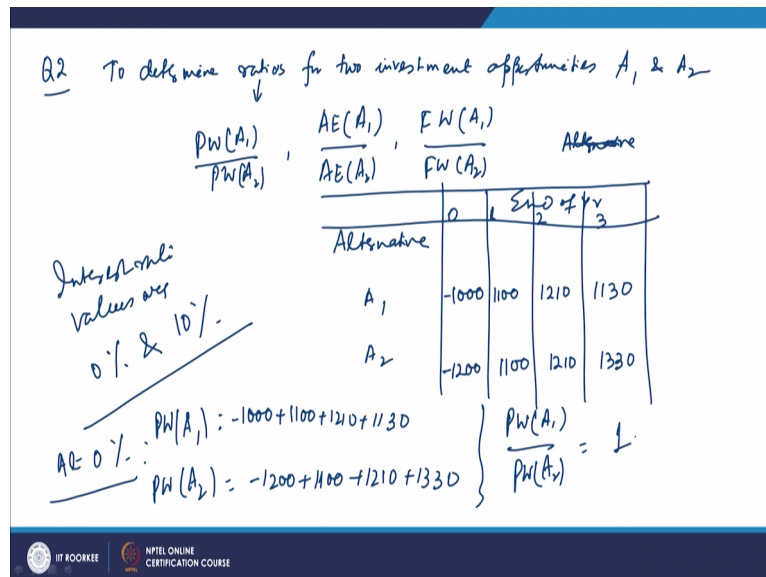 Q2 To determine ratios for two investment opportunities A1 & A2
PW(A1)/PW(A2) , AE(A1)/AE(A2) , FW(A1)/FW(A2)
End of yr
0 1 2 3
Alternative
A1 -1000 1100 1210 1130
A2 -1200 1100 1210 1330
Interest rate
values are
0% & 10%.
At 0% :
PW(A1) : -1000+1100+1210+1130
PW(A2) = -1200+1100+1210+1330
PW(A1)/PW(A2) = 1.
IIT ROORKEE
NPTEL ONLINE
CERTIFICATION COURSE